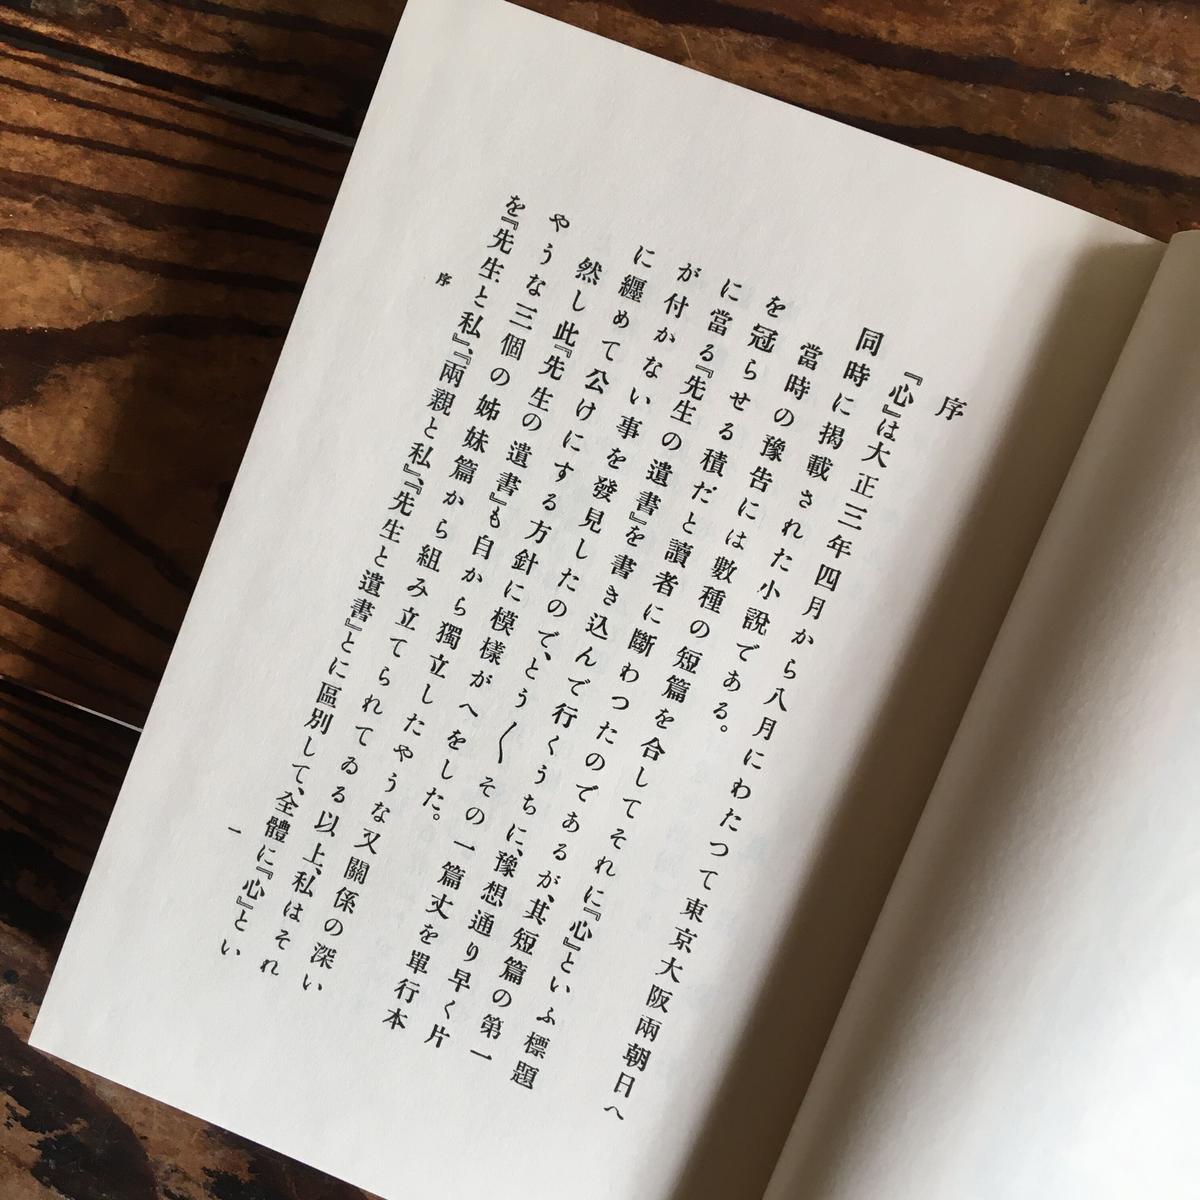 序
『心』は大正三年四月から八月にわたつて東京大阪兩朝日へ
同時に揭載された小說である。
當時の豫告には數種の短篇を合してそれに『心』といふ標題
を冠らせる積だと讀者に斷わつたのであるが、其短篇の第一
に當る『先生の遺書』を書き込んで行くうちに、豫想通り早く片
が付かない事を發見したので、とう〱その一篇丈を單行本
に纒めて公けにする方針に模樣がへをした。
然し此『先生の遺書』も自から獨立したやうな又關係の深い
やうな三個の姉妹篇から組み立てられてゐる以上、私はそれ
を『先生と私』、『兩親と私』、『先生と遺書』とに區別して、全體に『心』とい
序
一